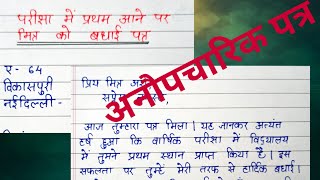 परीक्षा में प्रथम आने पर
मित्र को बधाई पत्र
ए- 64
विकासपुरी
नई दिल्ली -
प्रिय मित्र
अनौपचारिक पत्र
आज तुम्हारा पत्र मिला। यह जानकर अत्यंत
हर्ष हुआ कि वार्षिक परीक्षा में विद्यालय
में तुमने प्रथम स्थान प्राप्त किया है। इस
सफलता पर तुम्हें मेरी तरफ से हार्दिक बधाई।